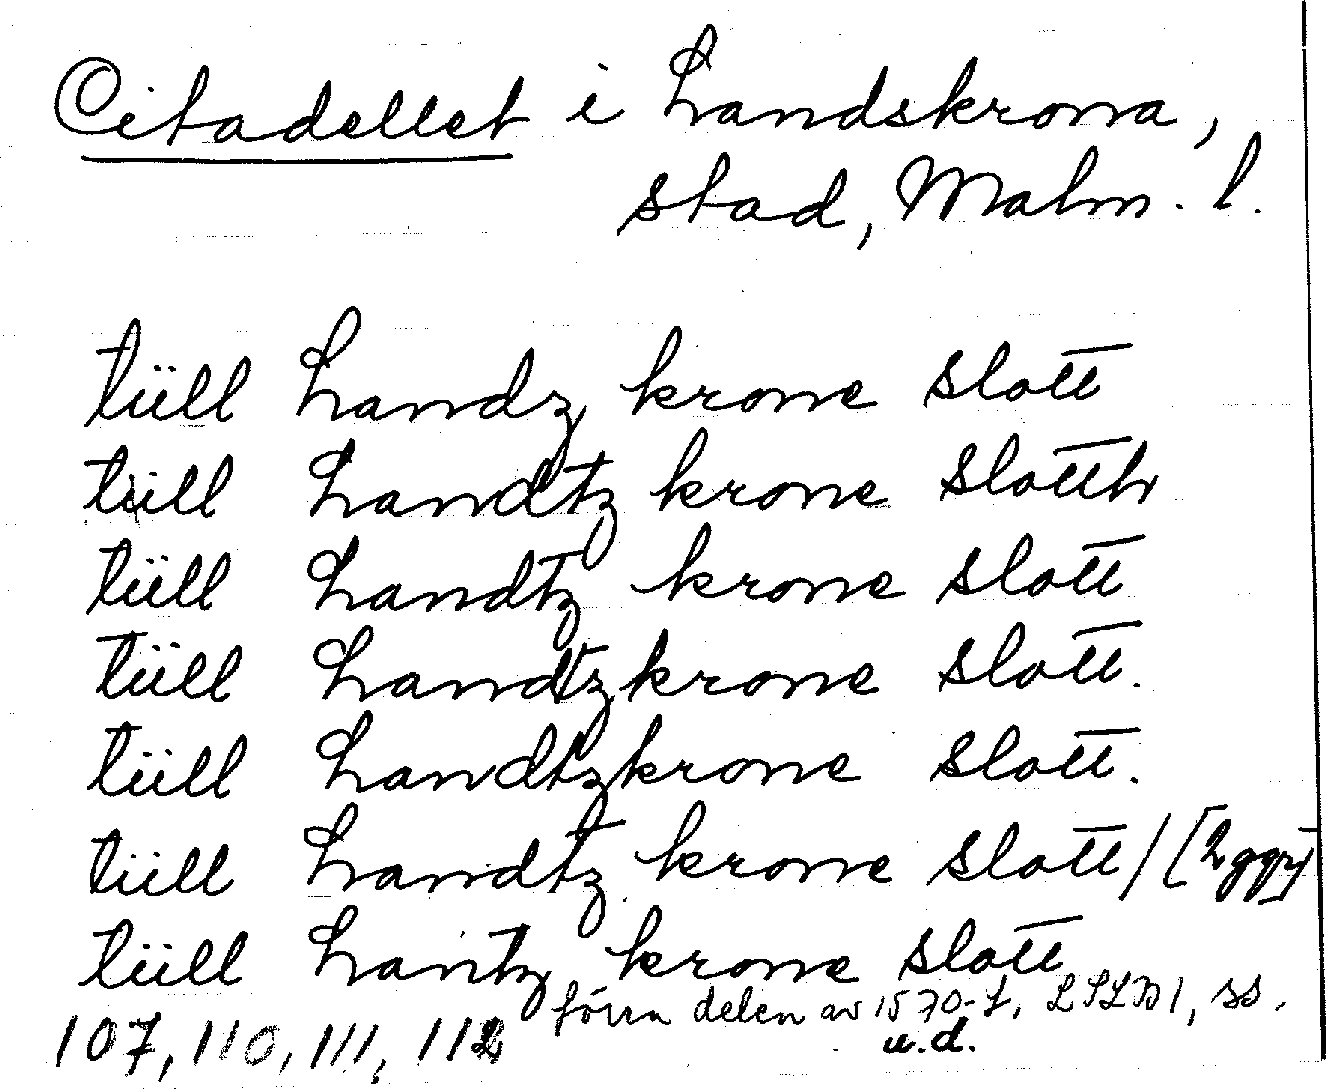 Citadellet i Landskrona,
stad, Malm. l.
tüll Landz krone slott
tüll Landtz krone slotth
tüll Landtz krone slott
tüll Landtzkrone slott.
tüll Landtzkrone slott.
tüll Landtz krone slott/[2 ggr]
tüll Lantz krone slott
förra delen av 1570-t. LSLB1, ss.
107, 110, 111, 112 u.d.